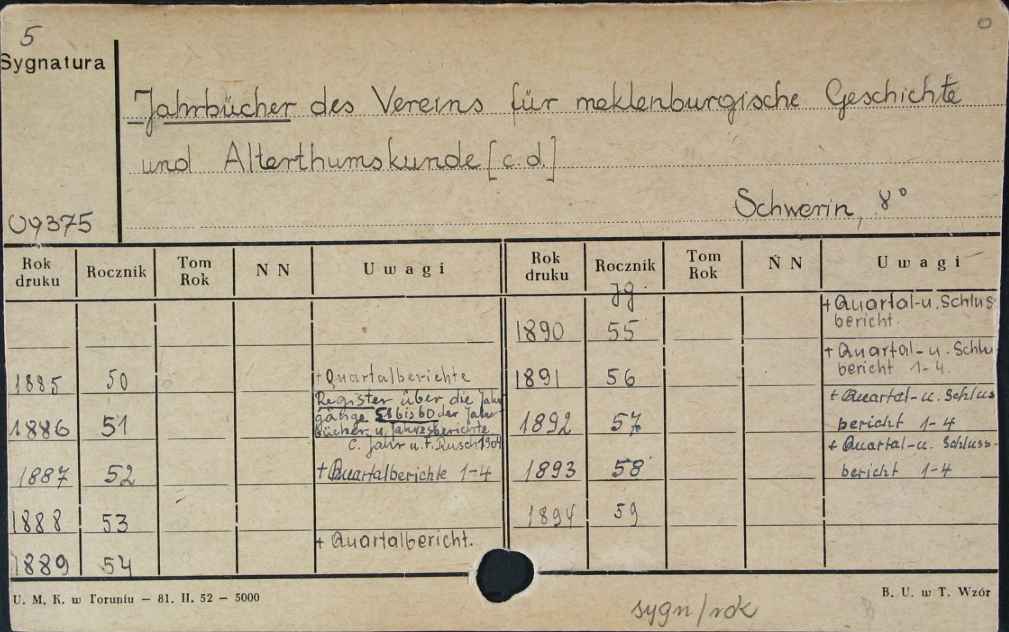 5
Sygnatura
Jahrbücher des Vereins für meklenburgische Geschichte
und Alterthumskunde [c.d.]
Schwerin, 8°
09375
Rok druku Rocznik Tom Rok N N Uwagi Rok druku Rocznik Tom Rok N N Uwagi
Jg.
1890 55 + Quartal-u. Schlus
bericht.
1885 50 + Quartalberichte 1891 56 + Quartal-u. Schlu
bericht 1-4.
1886 51 Register über die Jahr
gänge 51 bis 60 der Jahr
bücher u. Jahresberichte
C. Jahr u. F. Rusch 1904
1892 57 + Quartal-u. Schlus
bericht 1-4
1887 52 + Quartalberichte 1-4 1893 58 + Quartal-u. Schluss-
bericht 1-4
1888 53 1894 59
1889 54 + Quartalbericht.
U. M. K. w Toruniu — 81. II. 52 — 5000
B. U. w T. Wzór
sygn/rok